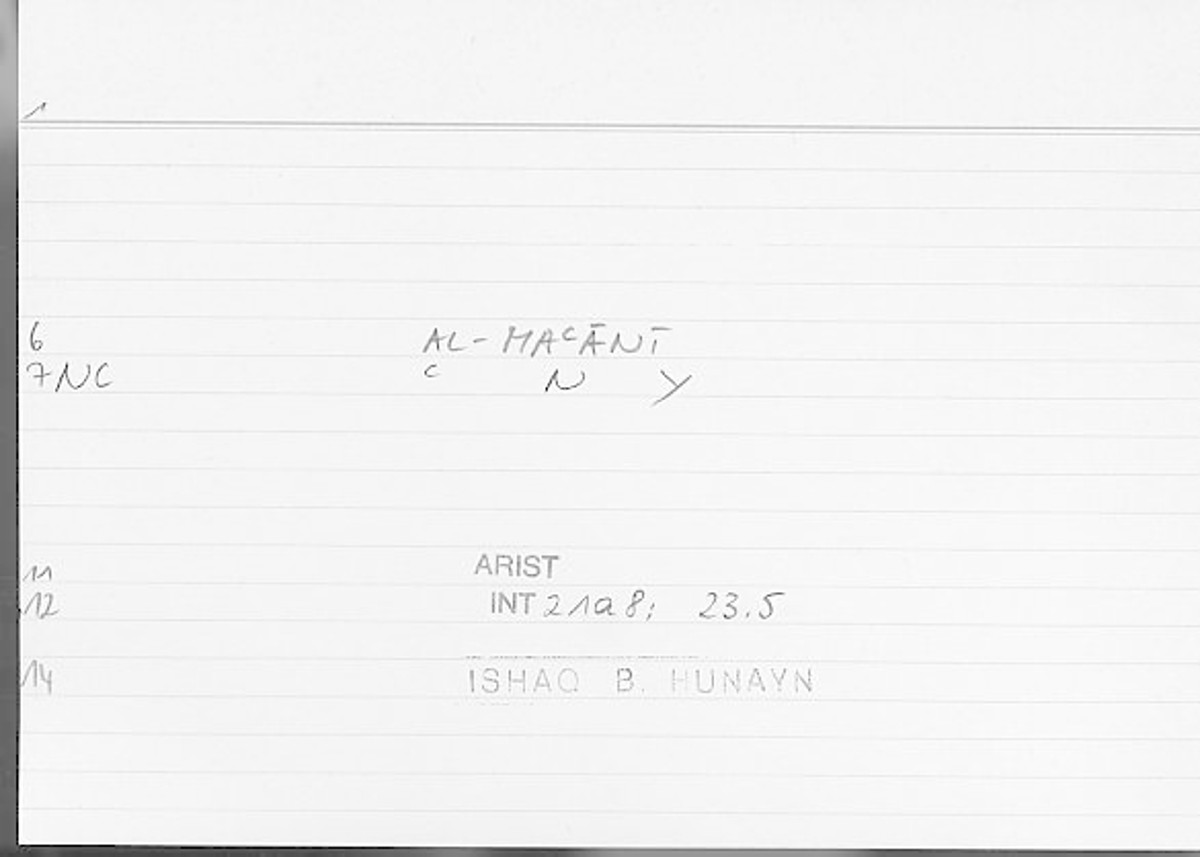 1
6 AL-MAᶜĀNĪ
7NC ᶜ N Y
11 ARIST
12 INT 21a8; 23.5
14 ISHAQ B. HUNAYN